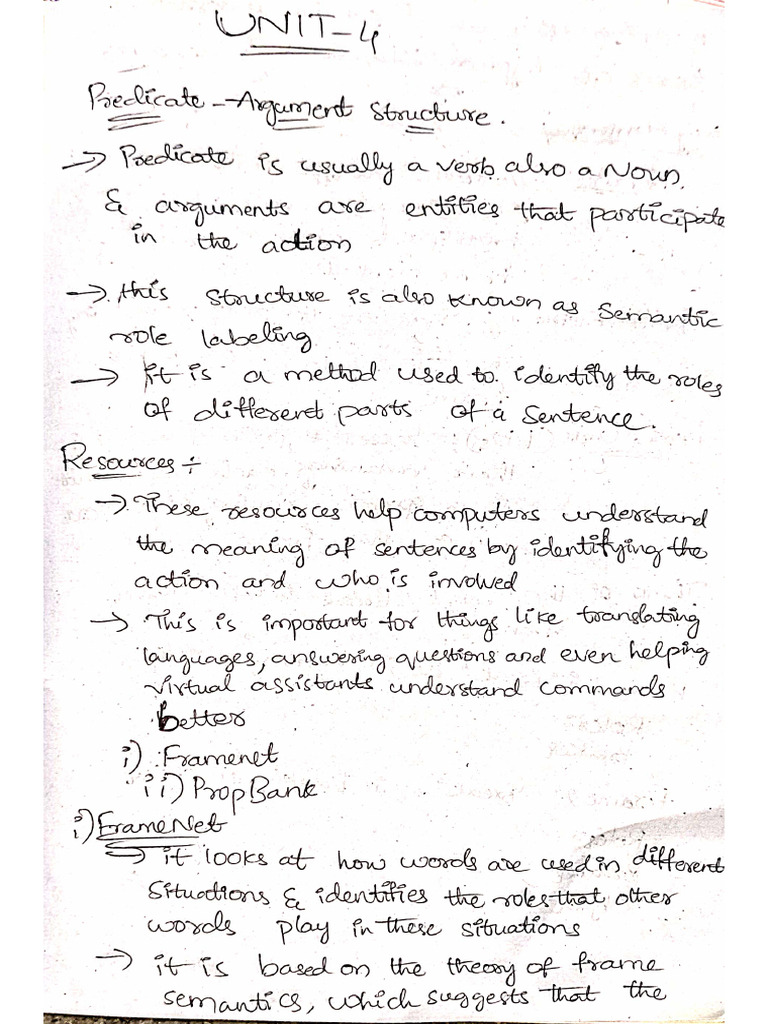 UNIT-4
Predicate - Argument Structure.
→ Predicate is usually a verb also a Noun
& arguments are entities that participate
in the action
→ this structure is also known as semantic
role labeling
→ it is a method used to identify the roles
of different parts of a sentence.
Resources ÷
→ These resources help computers understand
the meaning of sentences by identifying the
action and who is involved
→ This is important for things like translating
languages, answering questions and even helping
virtual assistants understand commands
better
i) Framenet
ii) PropBank
i) FrameNet
→ it looks at how words are used in different
situations & identifies the roles that other
words play in these situations
→ it is based on the theory of frame
semantics, which suggests that the